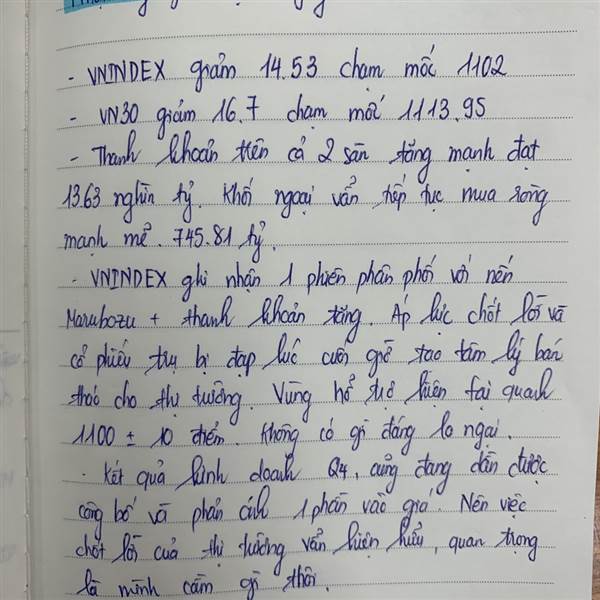 - VNINDEX giảm 14.53 chạm mốc 1102
- VN30 giảm 16.7 chạm mốc 1113.95
- Thanh khoản trên cả 2 sàn tăng mạnh đạt
13.63 nghìn tỷ. Khối ngoại vẫn tiếp tục mua ròng
mạnh mẽ. 745.81 tỷ.
- VNINDEX ghi nhận 1 phiên phân phối với nến
Marubozu + thanh khoản tăng. Áp lực chốt lời và
cổ phiếu trụ bị đạp lúc cuối giờ tạo tâm lý bán
tháo cho thị trường. Vùng hổ trợ hiện tại quanh
1100 ± 10 điểm. Không có gì đáng lo ngại.
- Kết quả kinh doanh Q4, cũng đang dần được
công bố và phản ánh 1 phần vào giá. Nên việc
chốt lời của thị trường vẫn hiện hữu, quan trọng
là mình cầm gì thôi.